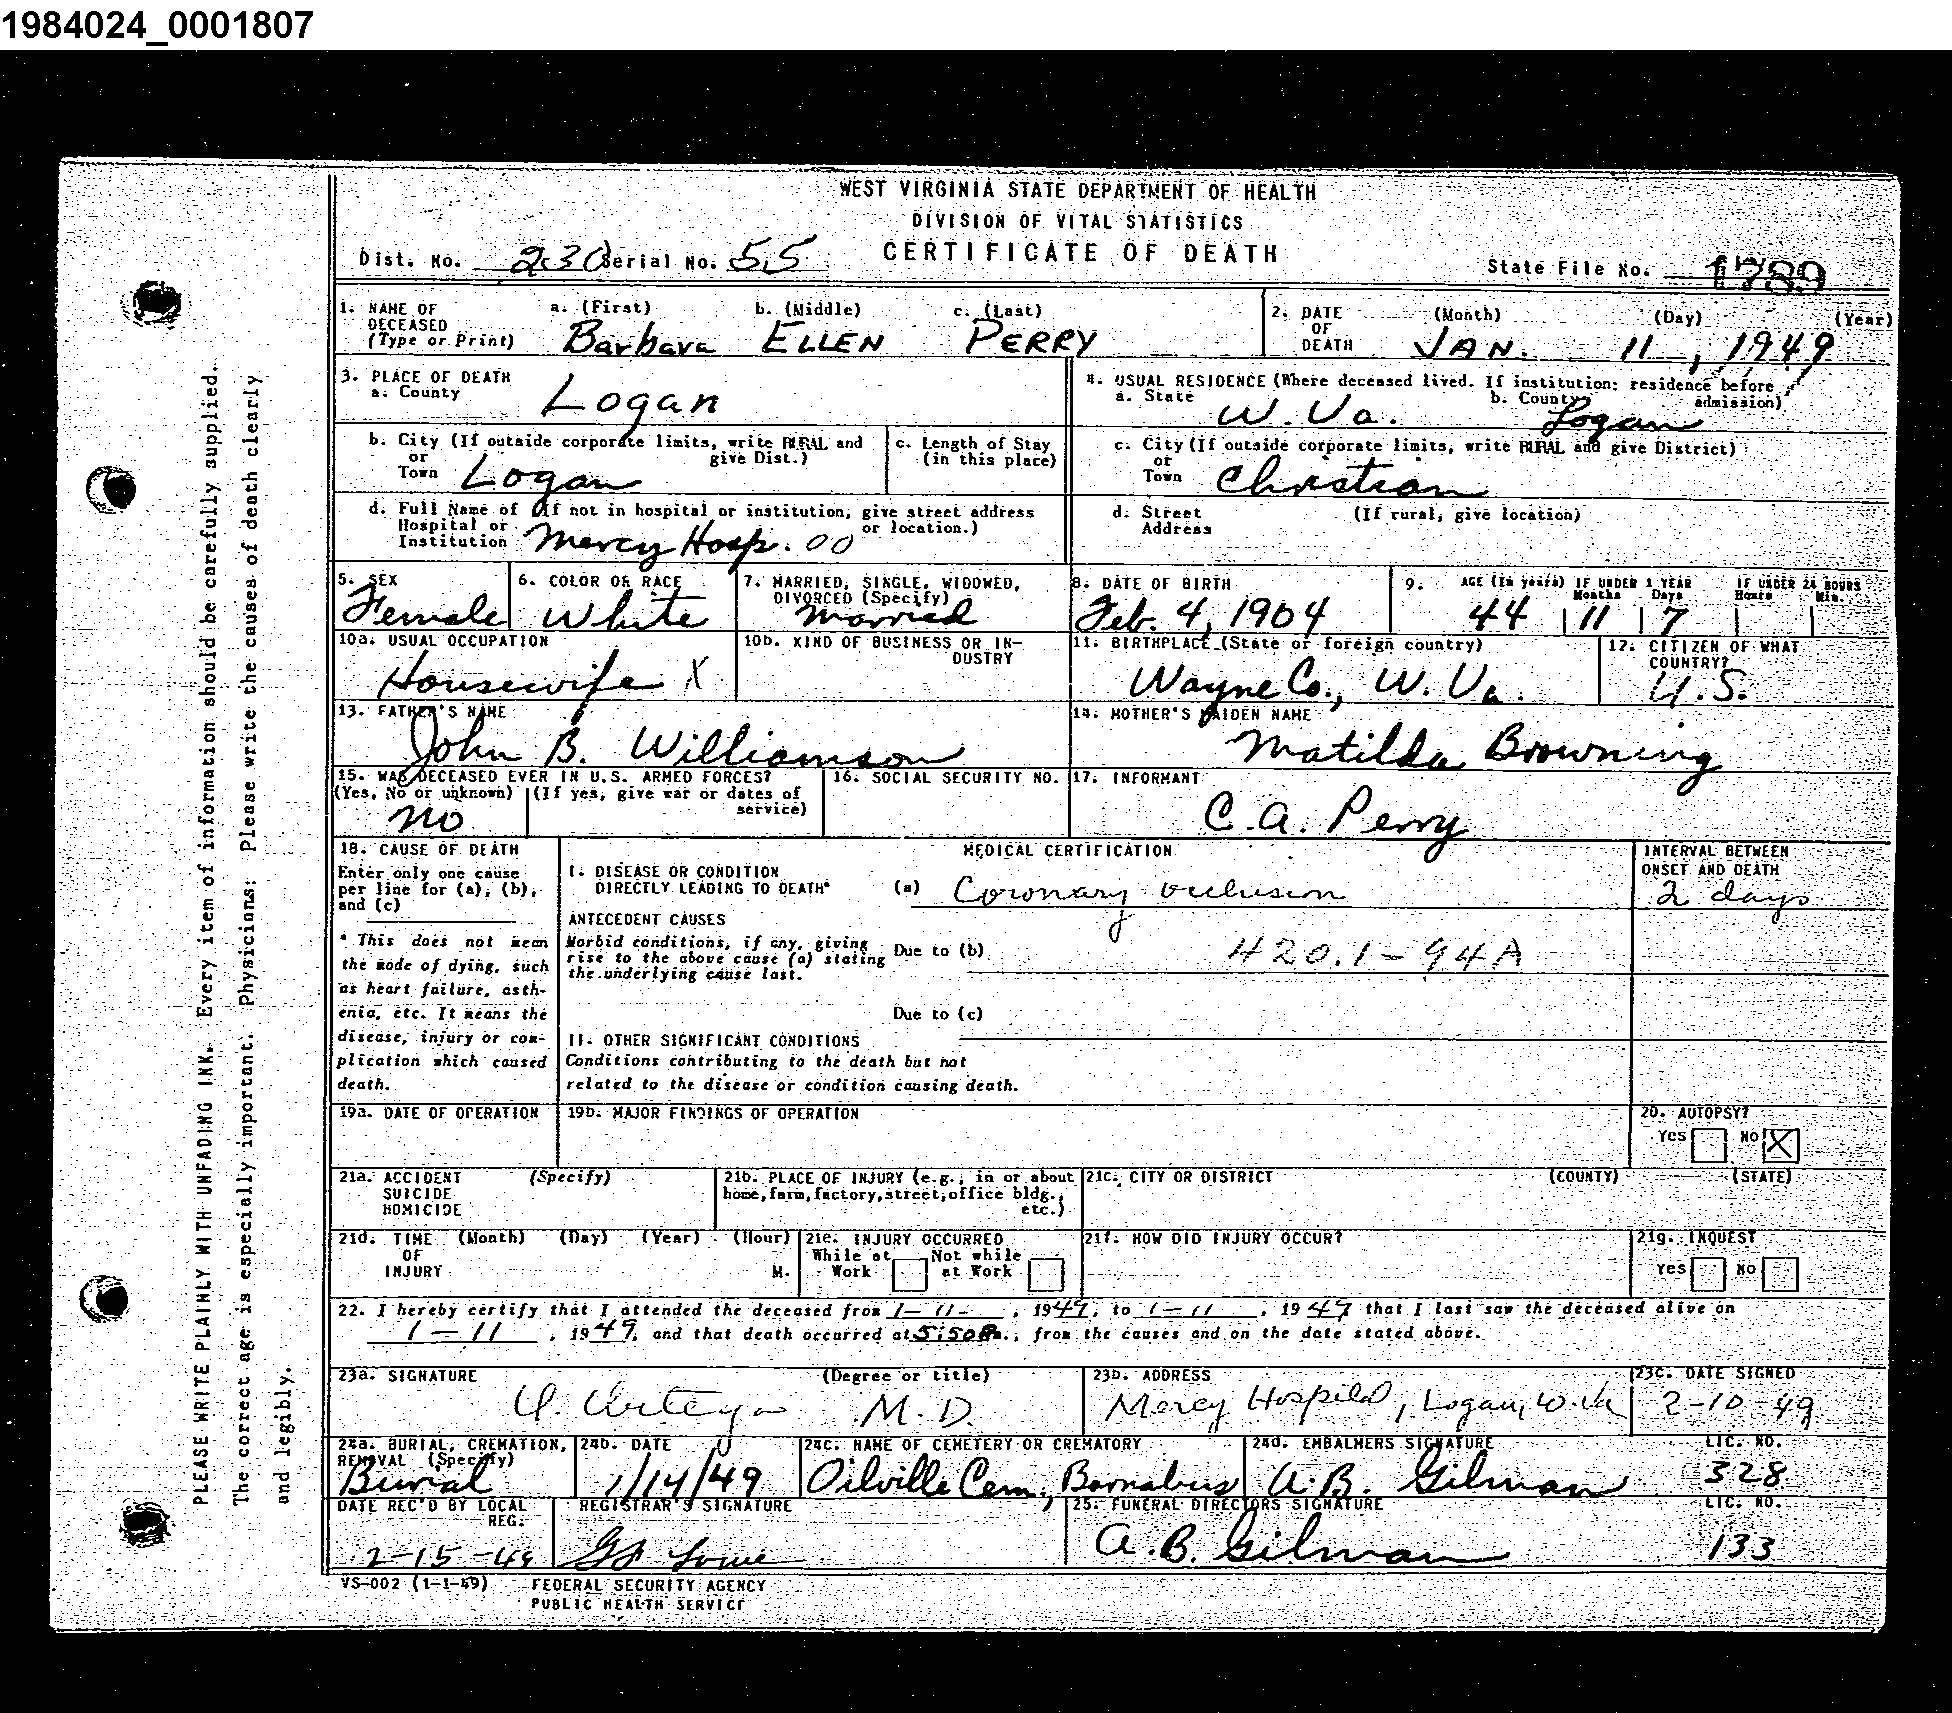 1984024_0001807
WEST VIRGINIA STATE DEPARTMENT OF HEALTH
DIVISION OF VITAL STATISTICS
CERTIFICATE OF DEATH
Dist. No. 230 Serial No. 55
State File No. 1789
1. NAME OF DECEASED (Type or Print) a. (First) Barbara b. (Middle) ELLEN c. (Last) PERRY
2. DATE OF DEATH (Month) JAN. (Day) 11, (Year) 1949
3. PLACE OF DEATH
a. County Logan
b. City (If outside corporate limits, write RURAL and give Dist.) or Town Logan
c. Length of Stay (in this place)
d. Full Name of (If not in hospital or institution, give street address or location.) Hospital or Institution Mercy Hosp. 00
4. USUAL RESIDENCE (Where deceased lived. If institution: residence before admission)
a. State W. Va. b. County Logan
c. City (If outside corporate limits, write RURAL and give District) or Town Christian
d. Street Address (If rural, give location)
5. SEX Female
6. COLOR OR RACE White
7. MARRIED, SINGLE, WIDOWED, DIVORCED (Specify) Married
8. DATE OF BIRTH Feb. 4, 1904
9. AGE (In years) 44 IF UNDER 1 YEAR Months 11 Days 7 IF UNDER 24 HOURS Hours Min.
10a. USUAL OCCUPATION Housewife X
10b. KIND OF BUSINESS OR INDUSTRY
11. BIRTHPLACE (State or foreign country) Wayne Co., W. Va.
12. CITIZEN OF WHAT COUNTRY? U.S.
13. FATHER'S NAME John B. Williamson
14. MOTHER'S MAIDEN NAME Matilda Browning
15. WAS DECEASED EVER IN U.S. ARMED FORCES? (Yes, No or unknown) (If yes, give war or dates of service) No
16. SOCIAL SECURITY NO.
17. INFORMANT C. A. Perry
18. CAUSE OF DEATH
Enter only one cause per line for (a), (b), and (c)
* This does not mean the mode of dying, such as heart failure, asthenia, etc. It means the disease, injury or complication which caused death.
MEDICAL CERTIFICATION
I. DISEASE OR CONDITION DIRECTLY LEADING TO DEATH* (a) Coronary occlusion
INTERVAL BETWEEN ONSET AND DEATH 2 days
ANTECEDENT CAUSES
Morbid conditions, if any, giving rise to the above cause (a) stating the underlying cause last.
Due to (b) 420.1-94A
Due to (c)
II. OTHER SIGNIFICANT CONDITIONS
Conditions contributing to the death but not related to the disease or condition causing death.
19a. DATE OF OPERATION
19b. MAJOR FINDINGS OF OPERATION
20. AUTOPSY? Yes No X
21a. ACCIDENT SUICIDE HOMICIDE (Specify)
21b. PLACE OF INJURY (e.g., in or about home, farm, factory, street, office bldg., etc.)
21c. CITY OR DISTRICT (COUNTY) (STATE)
21d. TIME OF INJURY (Month) (Day) (Year) (Hour) M.
21e. INJURY OCCURRED While at Work Not while at Work
21f. HOW DID INJURY OCCUR?
21g. INQUEST Yes No
22. I hereby certify that I attended the deceased from 1-11-, 1949, to 1-11, 1949 that I last saw the deceased alive on
1-11, 1949, and that death occurred at 5:50 P.m., from the causes and on the date stated above.
23a. SIGNATURE (Degree or title) M.D.
23b. ADDRESS Mercy Hospital, Logan, W. Va
23c. DATE SIGNED 2-10-49
24a. BURIAL, CREMATION, REMOVAL (Specify) Burial
24b. DATE 1/14/49
24c. NAME OF CEMETERY OR CREMATORY Oilville Cem., Barnabus
24d. EMBALMERS SIGNATURE A. B. Gilman LIC. NO. 328
DATE REC'D BY LOCAL REG. 2-15-49
REGISTRAR'S SIGNATURE
25. FUNERAL DIRECTORS SIGNATURE A. B. Gilman LIC. NO. 133
VS-002 (1-1-49) FEDERAL SECURITY AGENCY
PUBLIC HEALTH SERVICE
PLEASE WRITE PLAINLY WITH UNFADING INK. Every item of information should be carefully supplied.
The correct age is especially important. Physicians: Please write the causes of death clearly
and legibly.